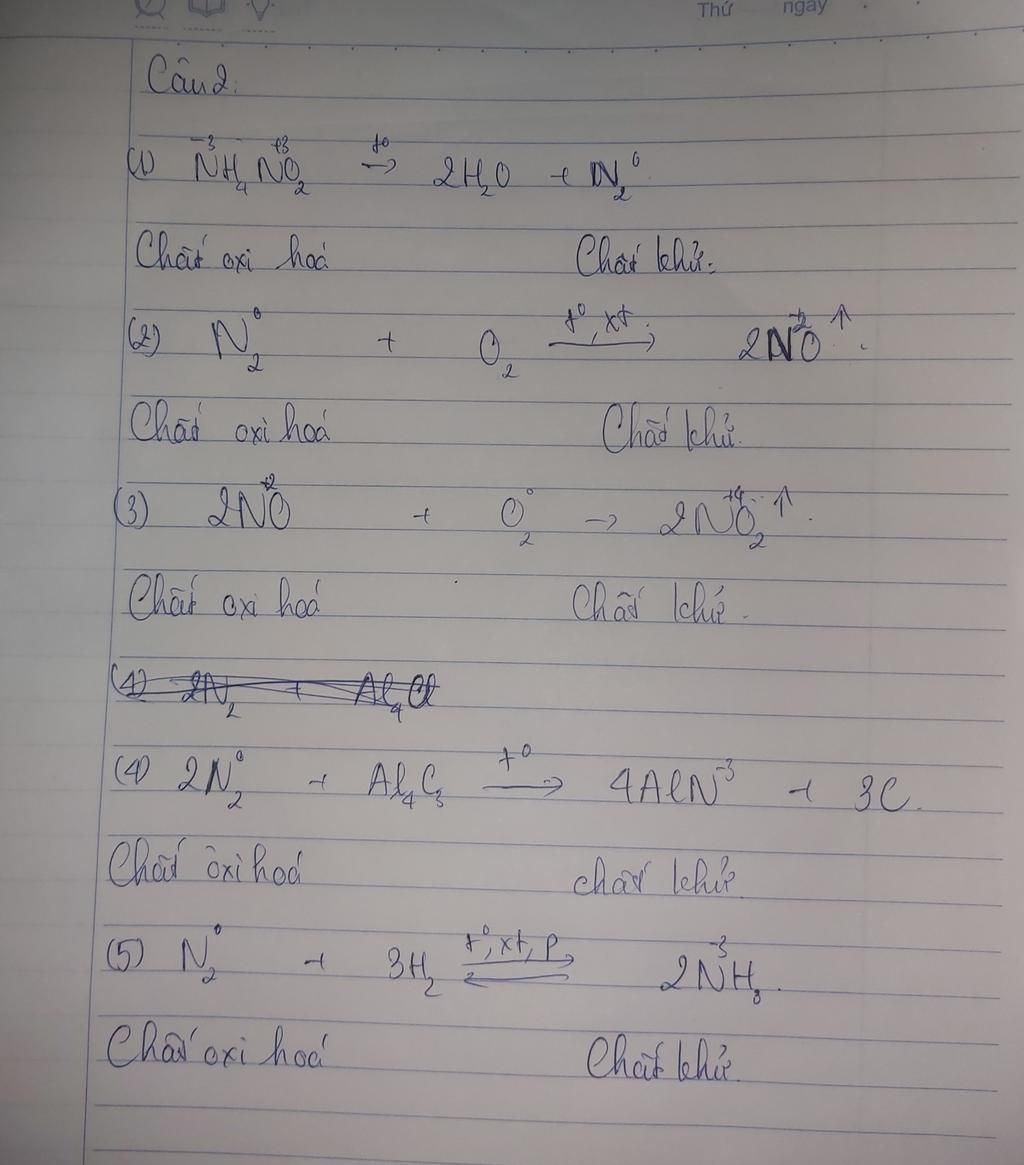 Thứ ngày
Câu 2:
(1) N⁻³H₄N⁺³O₂ t⁰→ 2H₂O + N₂⁰
Chất oxi hoá Chất khử.
(2) N₂⁰ + O₂ t⁰, xt→ 2N⁺²O ↑.
Chất oxi hoá Chất khử.
(3) 2N⁺²O + O₂⁰ → 2N⁺⁴O₂ ↑.
Chất oxi hoá Chất khử.
(4) 2N₂⁰ + Al₄C₃ t⁰→ 4AlN⁻³ + 3C.
Chất oxi hoá chất khử.
(5) N₂⁰ + 3H₂ t⁰, xt, p⇌ 2N⁻³H₃.
Chất oxi hoá Chất khử.